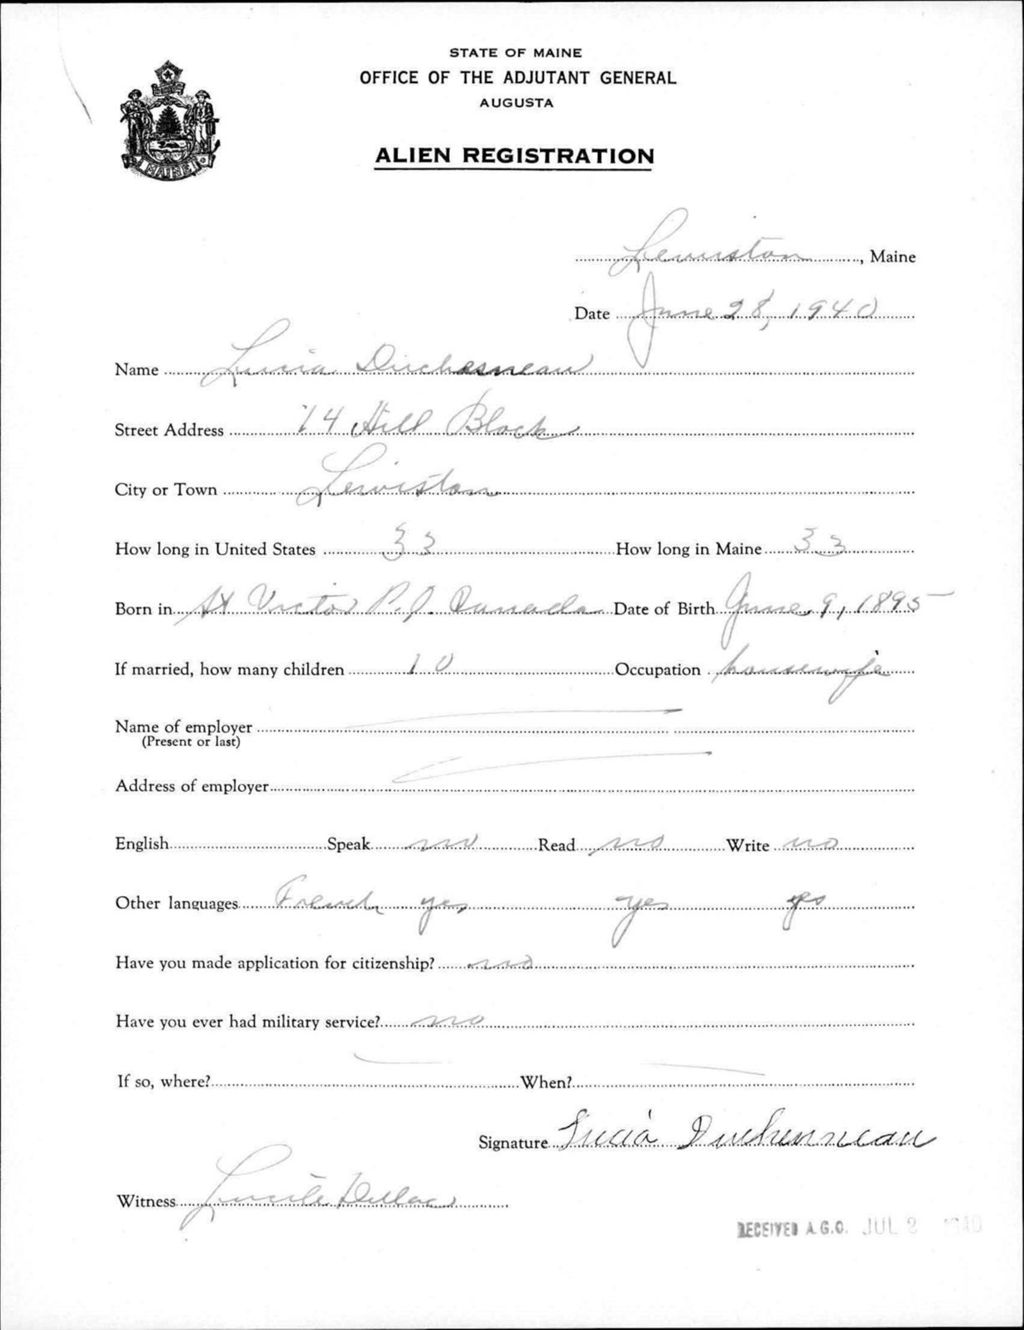 STATE OF MAINE
OFFICE OF THE ADJUTANT GENERAL
AUGUSTA
ALIEN REGISTRATION
MAINE
Lewiston, Maine
Date June 28, 1940
Name Lucia Duchesneau
Street Address 74 Hill Block
City or Town Lewiston
How long in United States 33 How long in Maine 33
Born in St Victor P.Q. Canada Date of Birth June 9, 1895
If married, how many children 10 Occupation housewife
Name of employer
(Present or last)
Address of employer
English Speak no Read no Write no
Other languages French yes yes yes
Have you made application for citizenship? no
Have you ever had military service? no
If so, where? When?
Signature Lucia Duchesneau
Witness Lucile Dulac
RECEIVED A.G.O. JUL 2 1940